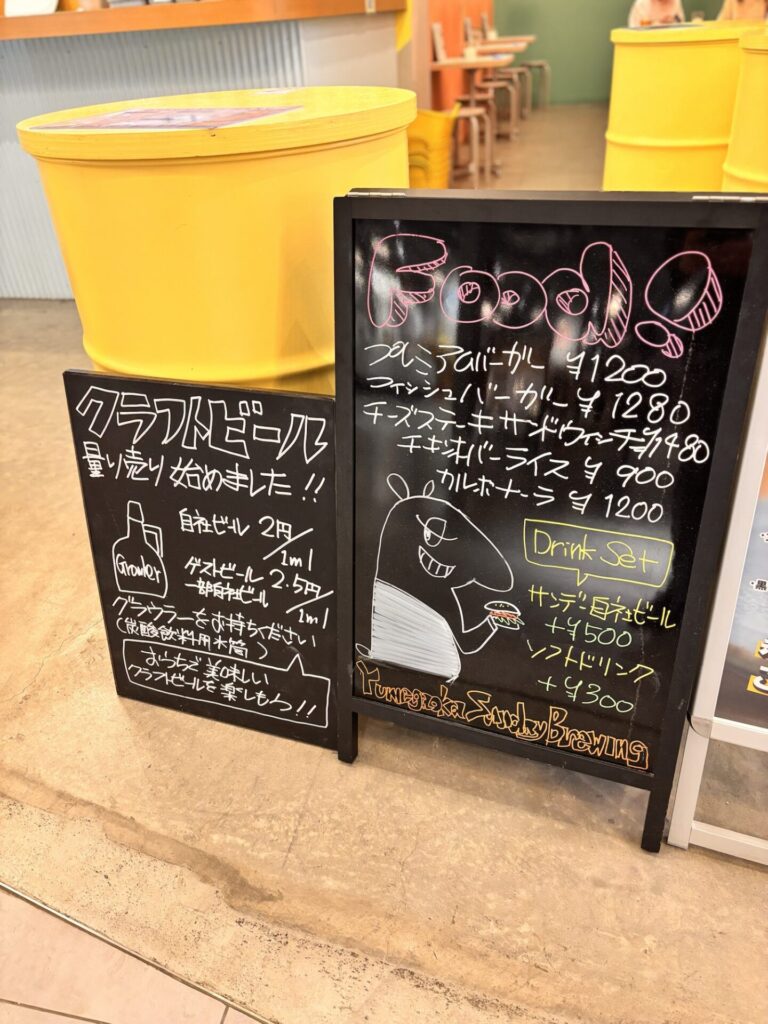 クラフトビール
量り売り始めました!!
自社ビール 2円/1ml
ゲストビール 2.5円/1ml
一部自社ビール
Growler
グラウラーをお持ちください
(炭酸飲料用水筒)
おうちで美味しい
クラフトビールを楽しもっ!!
Food!
プレミアムバーガー ¥1200
フィッシュバーガー ¥1280
チーズステーキサンドウィッチ ¥1480
チキンオーバーライス ¥900
カルボナーラ ¥1200
Drink Set
サンデー自社ビール
+¥500
ソフトドリンク
+¥300
Yumegaoka Sunday Brewing